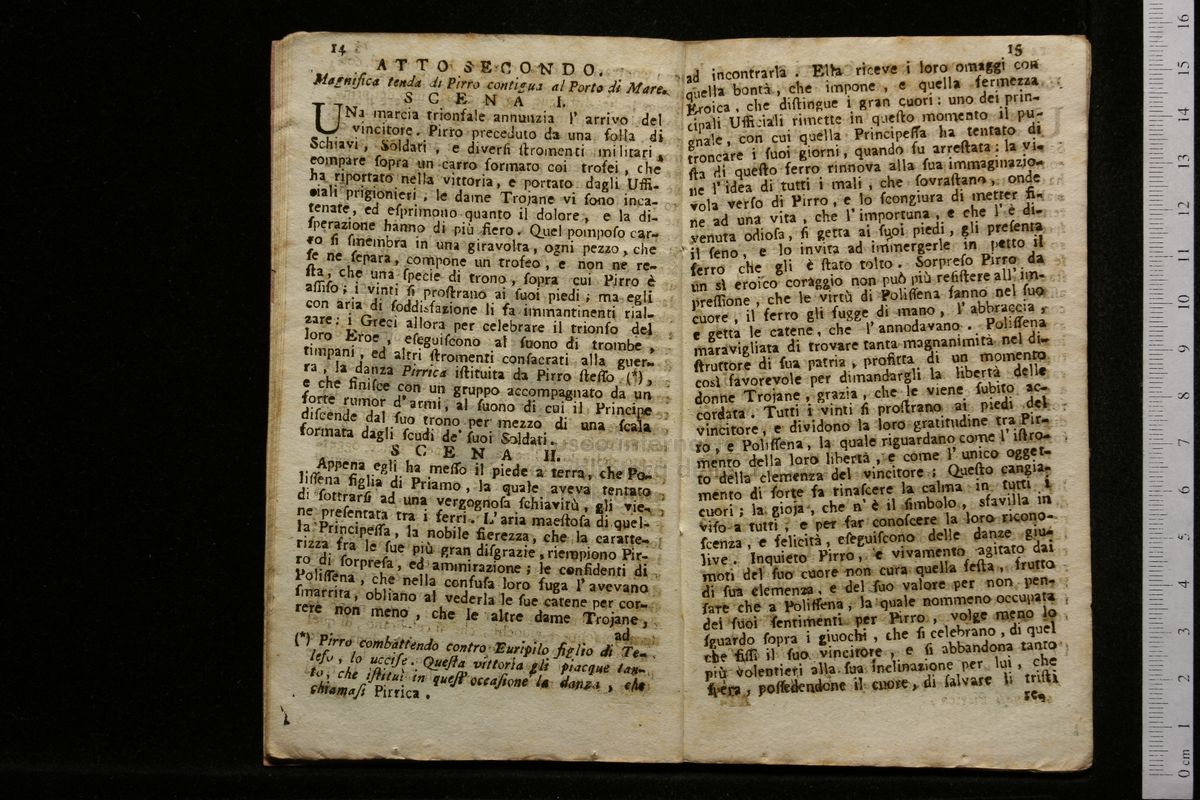 14
ATTO SECONDO.
Magnifica tenda di Pirro contigua al Porto di Mare.
SCENA I.
UNa marcia trionfale annunzia l' arrivo del
vincitore. Pirro preceduto da una folla di
Schiavi, Soldati, e diversi ſtromenti militari,
compare ſopra un carro formato coi trofei, che
ha riportato nella vittoria, e portato dagli Uffi-
ciali prigionieri, le dame Trojane vi ſono inca-
tenate, ed eſprimono quanto il dolore, e la di-
ſperazione hanno di più fiero. Quel pompoſo car-
ro ſi ſmembra in una giravolta, ogni pezzo, che
ſe ne ſepara, compone un trofeo, e non ne re-
ſta, che una ſpecie di trono, ſopra cui Pirro è
aſſiſo; i vinti ſi proſtrano ai ſuoi piedi; ma egli
con aria di ſoddisfazione li fa immantinenti rial-
zare: i Greci allora per celebrare il trionfo del
loro Eroe, eſeguiſcono al ſuono di trombe,
timpani, ed altri ſtromenti conſacrati alla guer-
ra, la danza Pirrica iſtituita da Pirro ſteſſo (*),
e che finiſce con un gruppo accompagnato da un
forte rumor d' armi, al ſuono di cui il Principe
diſcende dal ſuo trono per mezzo di una ſcala
formata dagli ſcudi de' ſuoi Soldati.
SCENA II.
Appena egli ha meſſo il piede a terra, che Po-
liſſena figlia di Priamo, la quale aveva tentato
di ſottrarſi ad una vergognoſa ſchiavitù, gli vie-
ne preſentata tra i ferri. L' aria maeſtoſa di quel-
la Principeſſa, la nobile fierezza, che la caratte-
rizza fra le ſue più gran diſgrazie, riempiono Pir-
ro di ſorpreſa, ed ammirazione; le confidenti di
Poliſſena, che nella confuſa loro fuga l' avevano
ſmarrita, obliano al vederla le ſue catene per cor-
rere non meno, che le altre dame Trojane,
ad
(*) Pirro combattendo contro Euripilo figlio di Te-
lefo, lo ucciſe. Queſta vittoria gli piacque tan-
to, che iſtituì in queſt' occaſione la danza, che
chiamaſi Pirrica.
15
ad incontrarla. Ella riceve i loro omaggi con
quella bontà, che impone, e quella fermezza
Eroica, che diſtingue i gran cuori: uno dei prin-
cipali Ufficiali rimette in queſto momento il pu-
gnale, con cui quella Principeſſa ha tentato di
troncare i ſuoi giorni, quando fu arreſtata: la vi-
ſta di queſto ferro rinnova alla ſua immaginazio-
ne l' idea di tutti i mali, che ſovraſtano, onde
vola verſo di Pirro, e lo ſcongiura di metter fi-
ne ad una vita, che l' importuna, e che l' è di-
venuta odioſa, ſi getta ai ſuoi piedi, gli preſenta
il ſeno, e lo invita ad immergerle in petto il
ferro che gli è ſtato tolto. Sorpreſo Pirro da
un sì eroico coraggio non può più reſiſtere all' im-
preſſione, che le virtù di Poliſſena fanno nel ſuo
cuore, il ferro gli fugge di mano, l' abbraccia,
e getta le catene, che l' annodavano. Poliſſena
maravigliata di trovare tanta magnanimità nel di-
ſtruttore di ſua patria, profitta di un momento
così favorevole per dimandargli la libertà delle
donne Trojane, grazia, che le viene ſubito ac-
cordata. Tutti i vinti ſi proſtrano ai piedi del
vincitore, e dividono la loro gratitudine tra Pir-
ro, e Poliſſena, la quale riguardano come l' iſtro-
mento della loro libertà, e come l' unico ogget-
to della clemenza del vincitore: Queſto cangia-
mento di ſorte fa rinaſcere la calma in tutti i
cuori; la gioja, che n' è il ſimbolo, sfavilla in
viſo a tutti, e per far conoſcere la loro ricono-
ſcenza, e felicità, eſeguiſcono delle danze giu-
live. Inquieto Pirro, e vivamento agitato dai
moti del ſuo cuore non cura quella feſta, frutto
di ſua clemenza, e del ſuo valore per non pen-
ſare che a Poliſſena, la quale nommeno occupata
dei ſuoi ſentimenti per Pirro, volge meno lo
ſguardo ſopra i giuochi, che ſi celebrano, di quel
che fiſſi il ſuo vincitore, e ſi abbandona tanto
più volentieri alla ſua inclinazione per lui, che
ſpera, poſſedendone il cuore, di ſalvare li triſti
re-